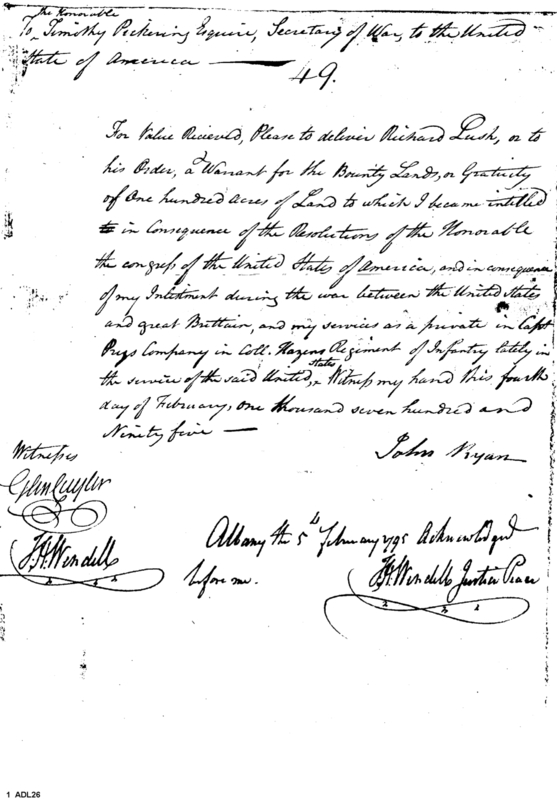 the Honorable
To Timothy Pickering Esquire, Secretary of War, to the United
State of America —
49.
For Value Recieved, Please to deliver Richard Lush, or to
his Order, a Warrant for the Bounty Lands, or Gratuity
of One hundred acres of Land to which I became intitled
in Consequence of the Resolutions of the Honorable
the congress of the United States of America, and in consequence
of my Inlistment during the war between the United States
and great Brittain, and my services as a private in Capt
Prys Company in Coll. Hazens Regiment of Infantry lately in
the service of the said United States, Witness my hand this fourth
day of February, one thousand seven hundred and
Ninety five —
John Ryan
Witnesses
Glen Cuyler
J. H. Wendell
Albany the 5th February 1795 Acknowledged
before me.
J. H. Wendell Justice Peace
1 ADL26